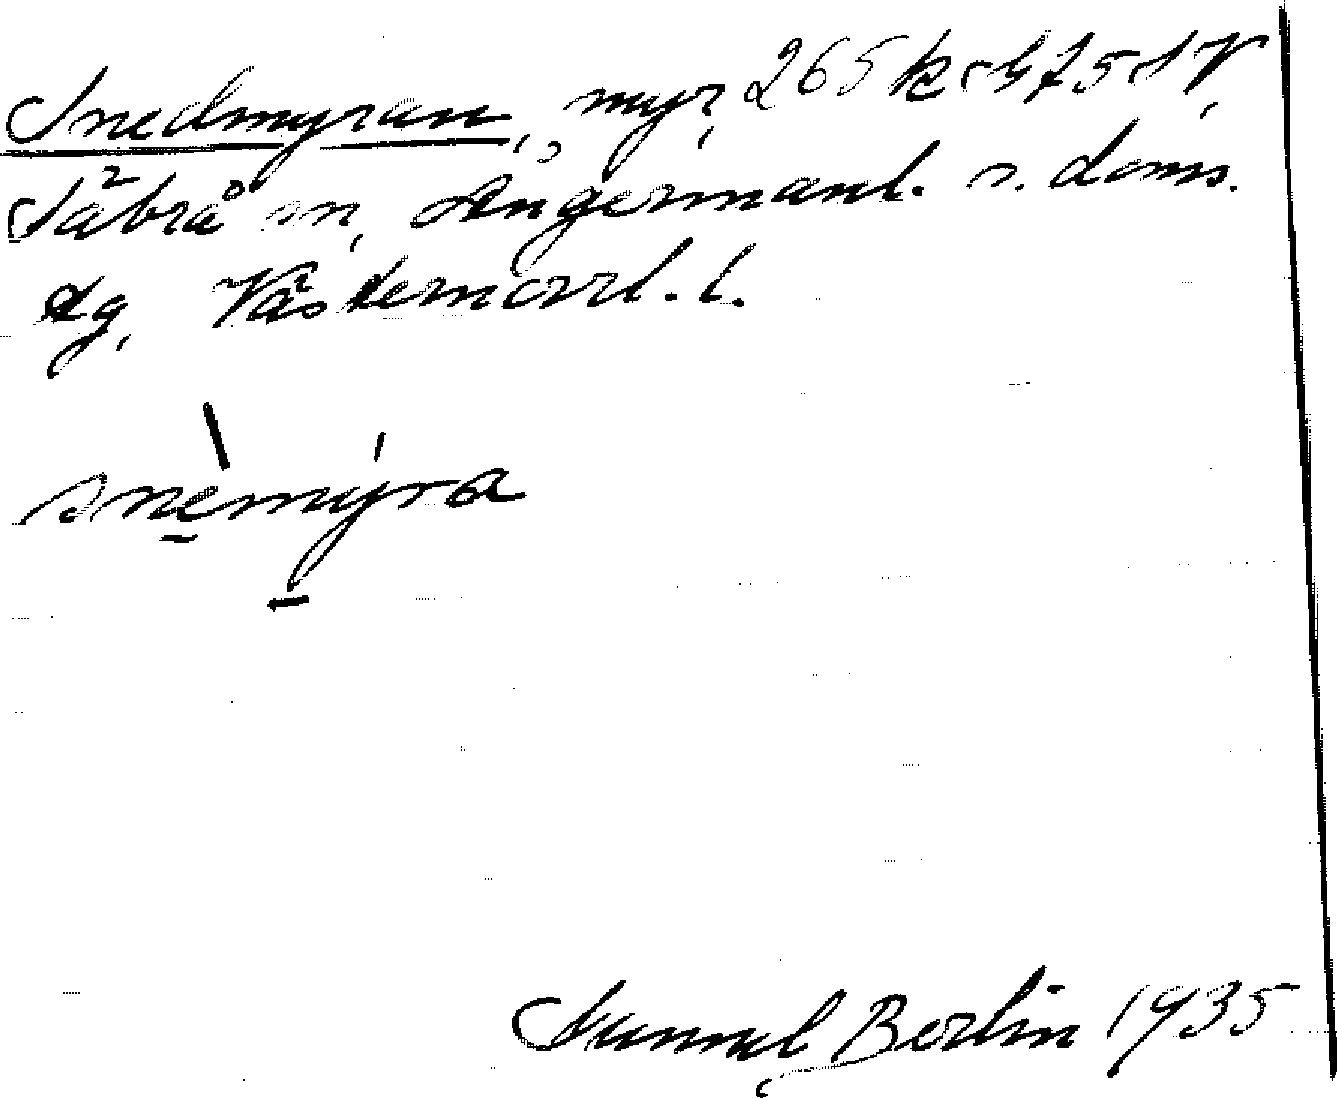 Snedmyran, myr, 265 k
Säbrå sn, Ångermanl. s. doms.
dg, Västernorrl. l.
snèmýra
Gunnel Berlin 1935